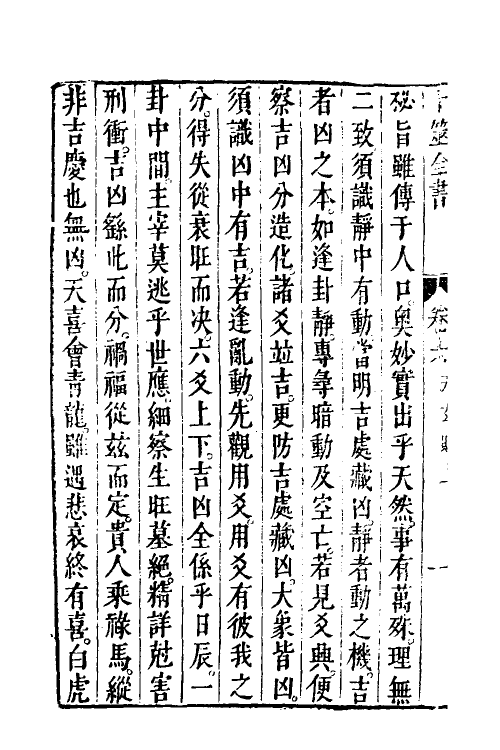 卜筮全書
卷之六
秘旨雖傳于人口。奧妙實出乎天然。事有萬殊。理無
二致。須識靜中有動。當明吉處藏凶。靜者動之機。吉
者凶之本。如逢卦靜。專尋暗動及空亡。若見爻興。便
察吉凶分造化。諸爻竝吉。更防吉處藏凶。大象皆凶。
須識凶中有吉。若逢亂動。先觀用爻。用爻有彼我之
分。得失從衰旺而决。六爻上下。吉凶全係乎日辰。一
卦中間。主宰莫逃乎世應。細察生旺墓絕。精詳尅害
刑衝。吉凶繇此而分。禍福從玆而定。貴人乘祿馬。縱
非吉慶也無凶。天喜會靑龍。雖遇悲哀終有喜。白虎